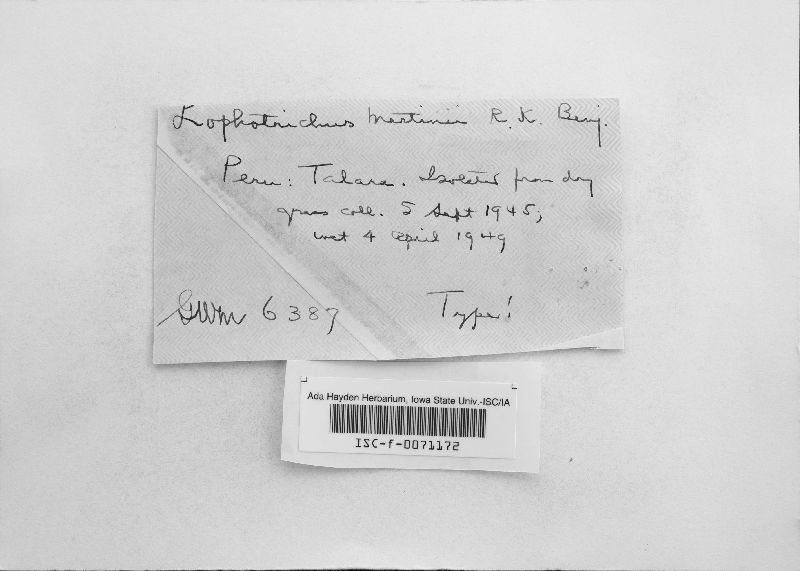 Lophotrichus martinii R. K. Benj.
Peru: Talara. Isolated from dry
grass coll. 5 Sept 1945;
wet 4 April 1949
GWM 6387 Type!
Ada Hayden Herbarium, Iowa State Univ.-ISC/IA
ISC-f-0071172